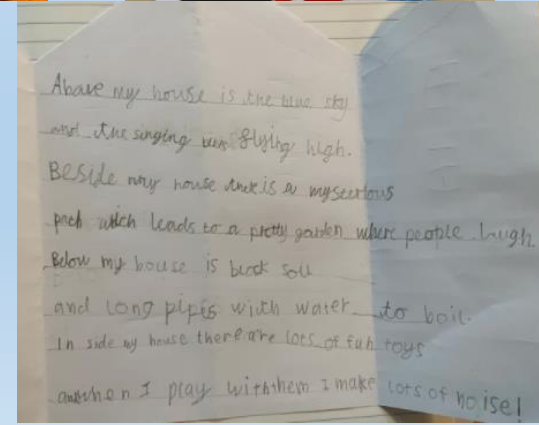 Above my house is the blue sky
and the singing flying high.
Beside my house is a myseerious
which leads to a pretty garden where people laugh
Below my house is black soil
and long pipis with water to boil.
In side my house there are lots of fun toys
when I play with them I make lots of noise!